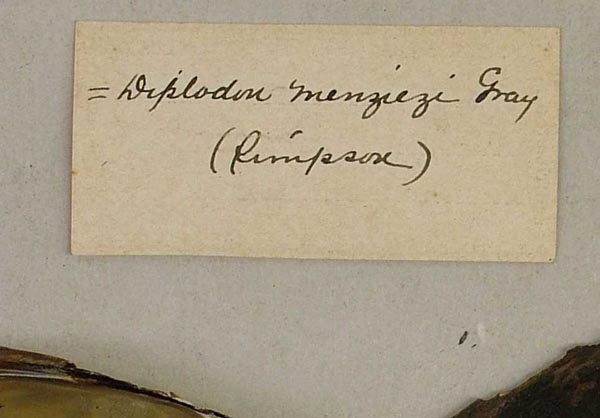 = Diplodon menziezi Gray
(Simpson)